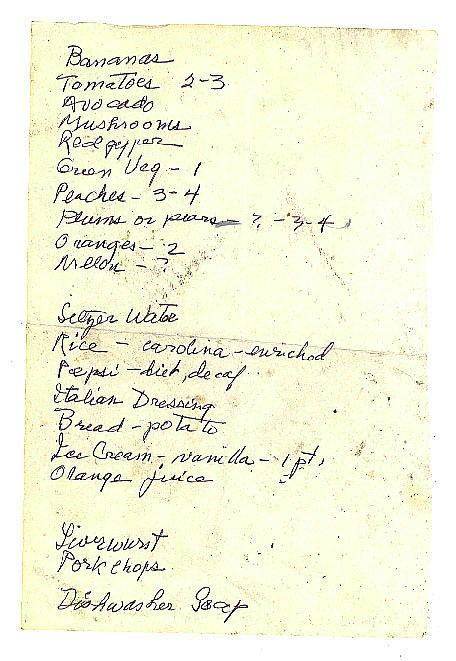 Bananas
Tomatoes 2-3
Avocado
Mushrooms
Red pepper
Green Veg - 1
Peaches - 3-4
Plums or pears - ? - 3-4
Oranges - 2
Melon - ?
Seltzer Water
Rice - carolina - enriched
Pepsi - diet, decaf
Italian Dressing
Bread - potato
Ice Cream - vanilla - 1 pt.
Orange juice
Liverwurst
Pork chops
Dishwasher Soap